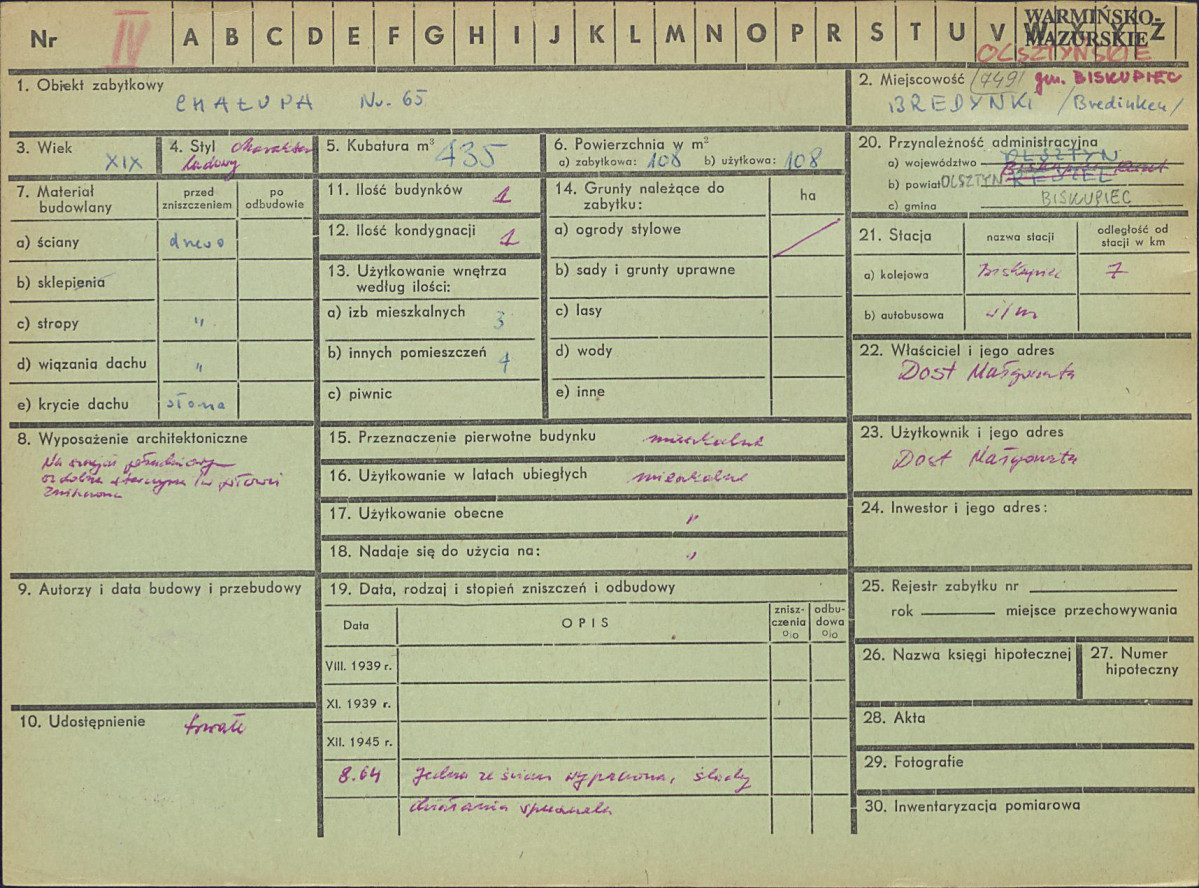 Nr IV A B C D E F G H I J K L M N O P R S T U V W X Y Z
WARMIŃSKO-
MAZURSKIE
OLSZTYŃSKIE
1. Obiekt zabytkowy
CHAŁUPA Nr. 65
2. Miejscowość (749) gm. BISKUPIEC
BREDYNKI /Bredinken/
3. Wiek
XIX
4. Styl charakter
ludowy
5. Kubatura m³ 435
6. Powierzchnia w m²
a) zabytkowa: 108 b) użytkowa: 108
20. Przynależność administracyjna
a) województwo OLSZTYN
b) powiat OLSZTYN RESZEL
c) gmina BISKUPIEC
7. Materiał
budowlany
przed
zniszczeniem
po
odbudowie
a) ściany drewo
b) sklepienia
c) stropy "
d) wiązania dachu "
e) krycie dachu słoma
11. Ilość budynków 1
12. Ilość kondygnacji 1
13. Użytkowanie wnętrza
według ilości:
a) izb mieszkalnych 3
b) innych pomieszczeń 4
c) piwnic
14. Grunty należące do
zabytku:
ha
a) ogrody stylowe
b) sady i grunty uprawne
c) lasy
d) wody
e) inne
21. Stacja
nazwa stacji
odległość od
stacji w km
a) kolejowa Biskupiec 7
b) autobusowa
22. Właściciel i jego adres
Dost Małgorzata
8. Wyposażenie architektoniczne
zniszczona
15. Przeznaczenie pierwotne budynku mieszkalne
16. Użytkowanie w latach ubiegłych mieszkalne
17. Użytkowanie obecne "
18. Nadaje się do użycia na: "
23. Użytkownik i jego adres
Dost Małgorzata
24. Inwestor i jego adres:
9. Autorzy i data budowy i przebudowy
10. Udostępnienie trwałe
19. Data, rodzaj i stopień zniszczeń i odbudowy
Data
OPIS
znisz-
czenia
%
odbu-
dowa
%
VIII. 1939 r.
XI. 1939 r.
XII. 1945 r.
8.64 Jedna ze ścian wyparzona, ślady
działania
25. Rejestr zabytku nr
rok miejsce przechowywania
26. Nazwa księgi hipotecznej
27. Numer
hipoteczny
28. Akta
29. Fotografie
30. Inwentaryzacja pomiarowa